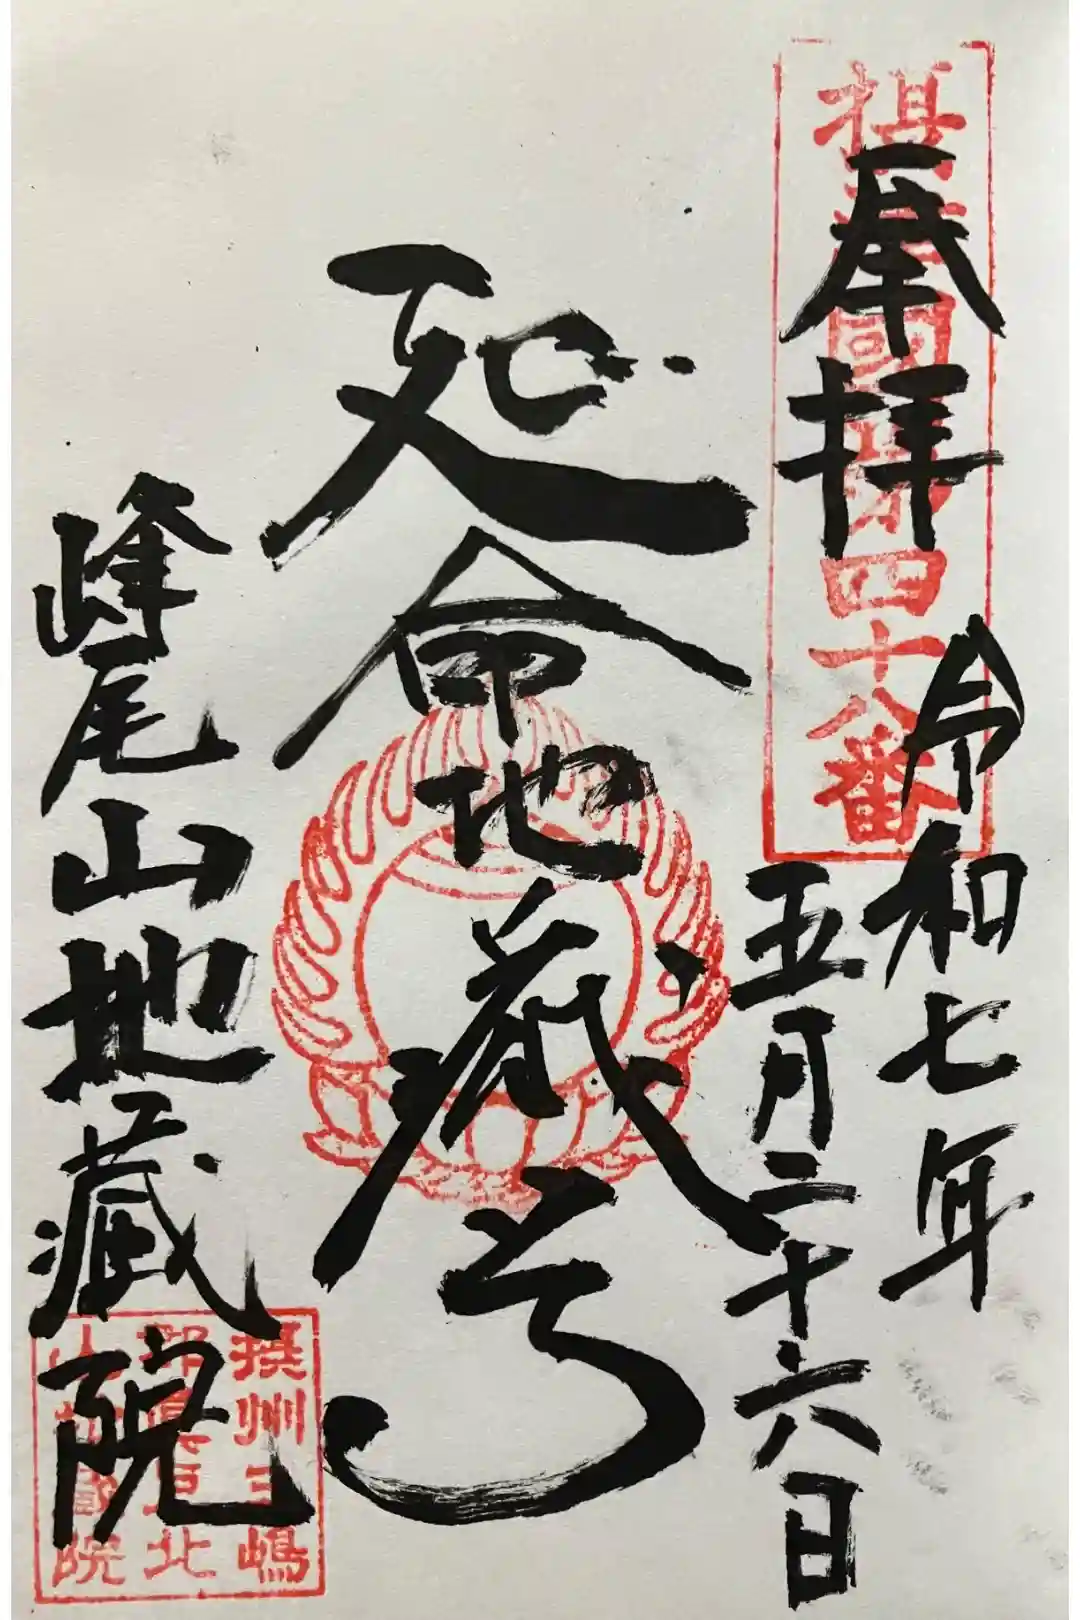 摂津國第四十八番
奉拝
令和七年
五月二十六日
延命地蔵尊
峰尾山地蔵院
摂州三嶋